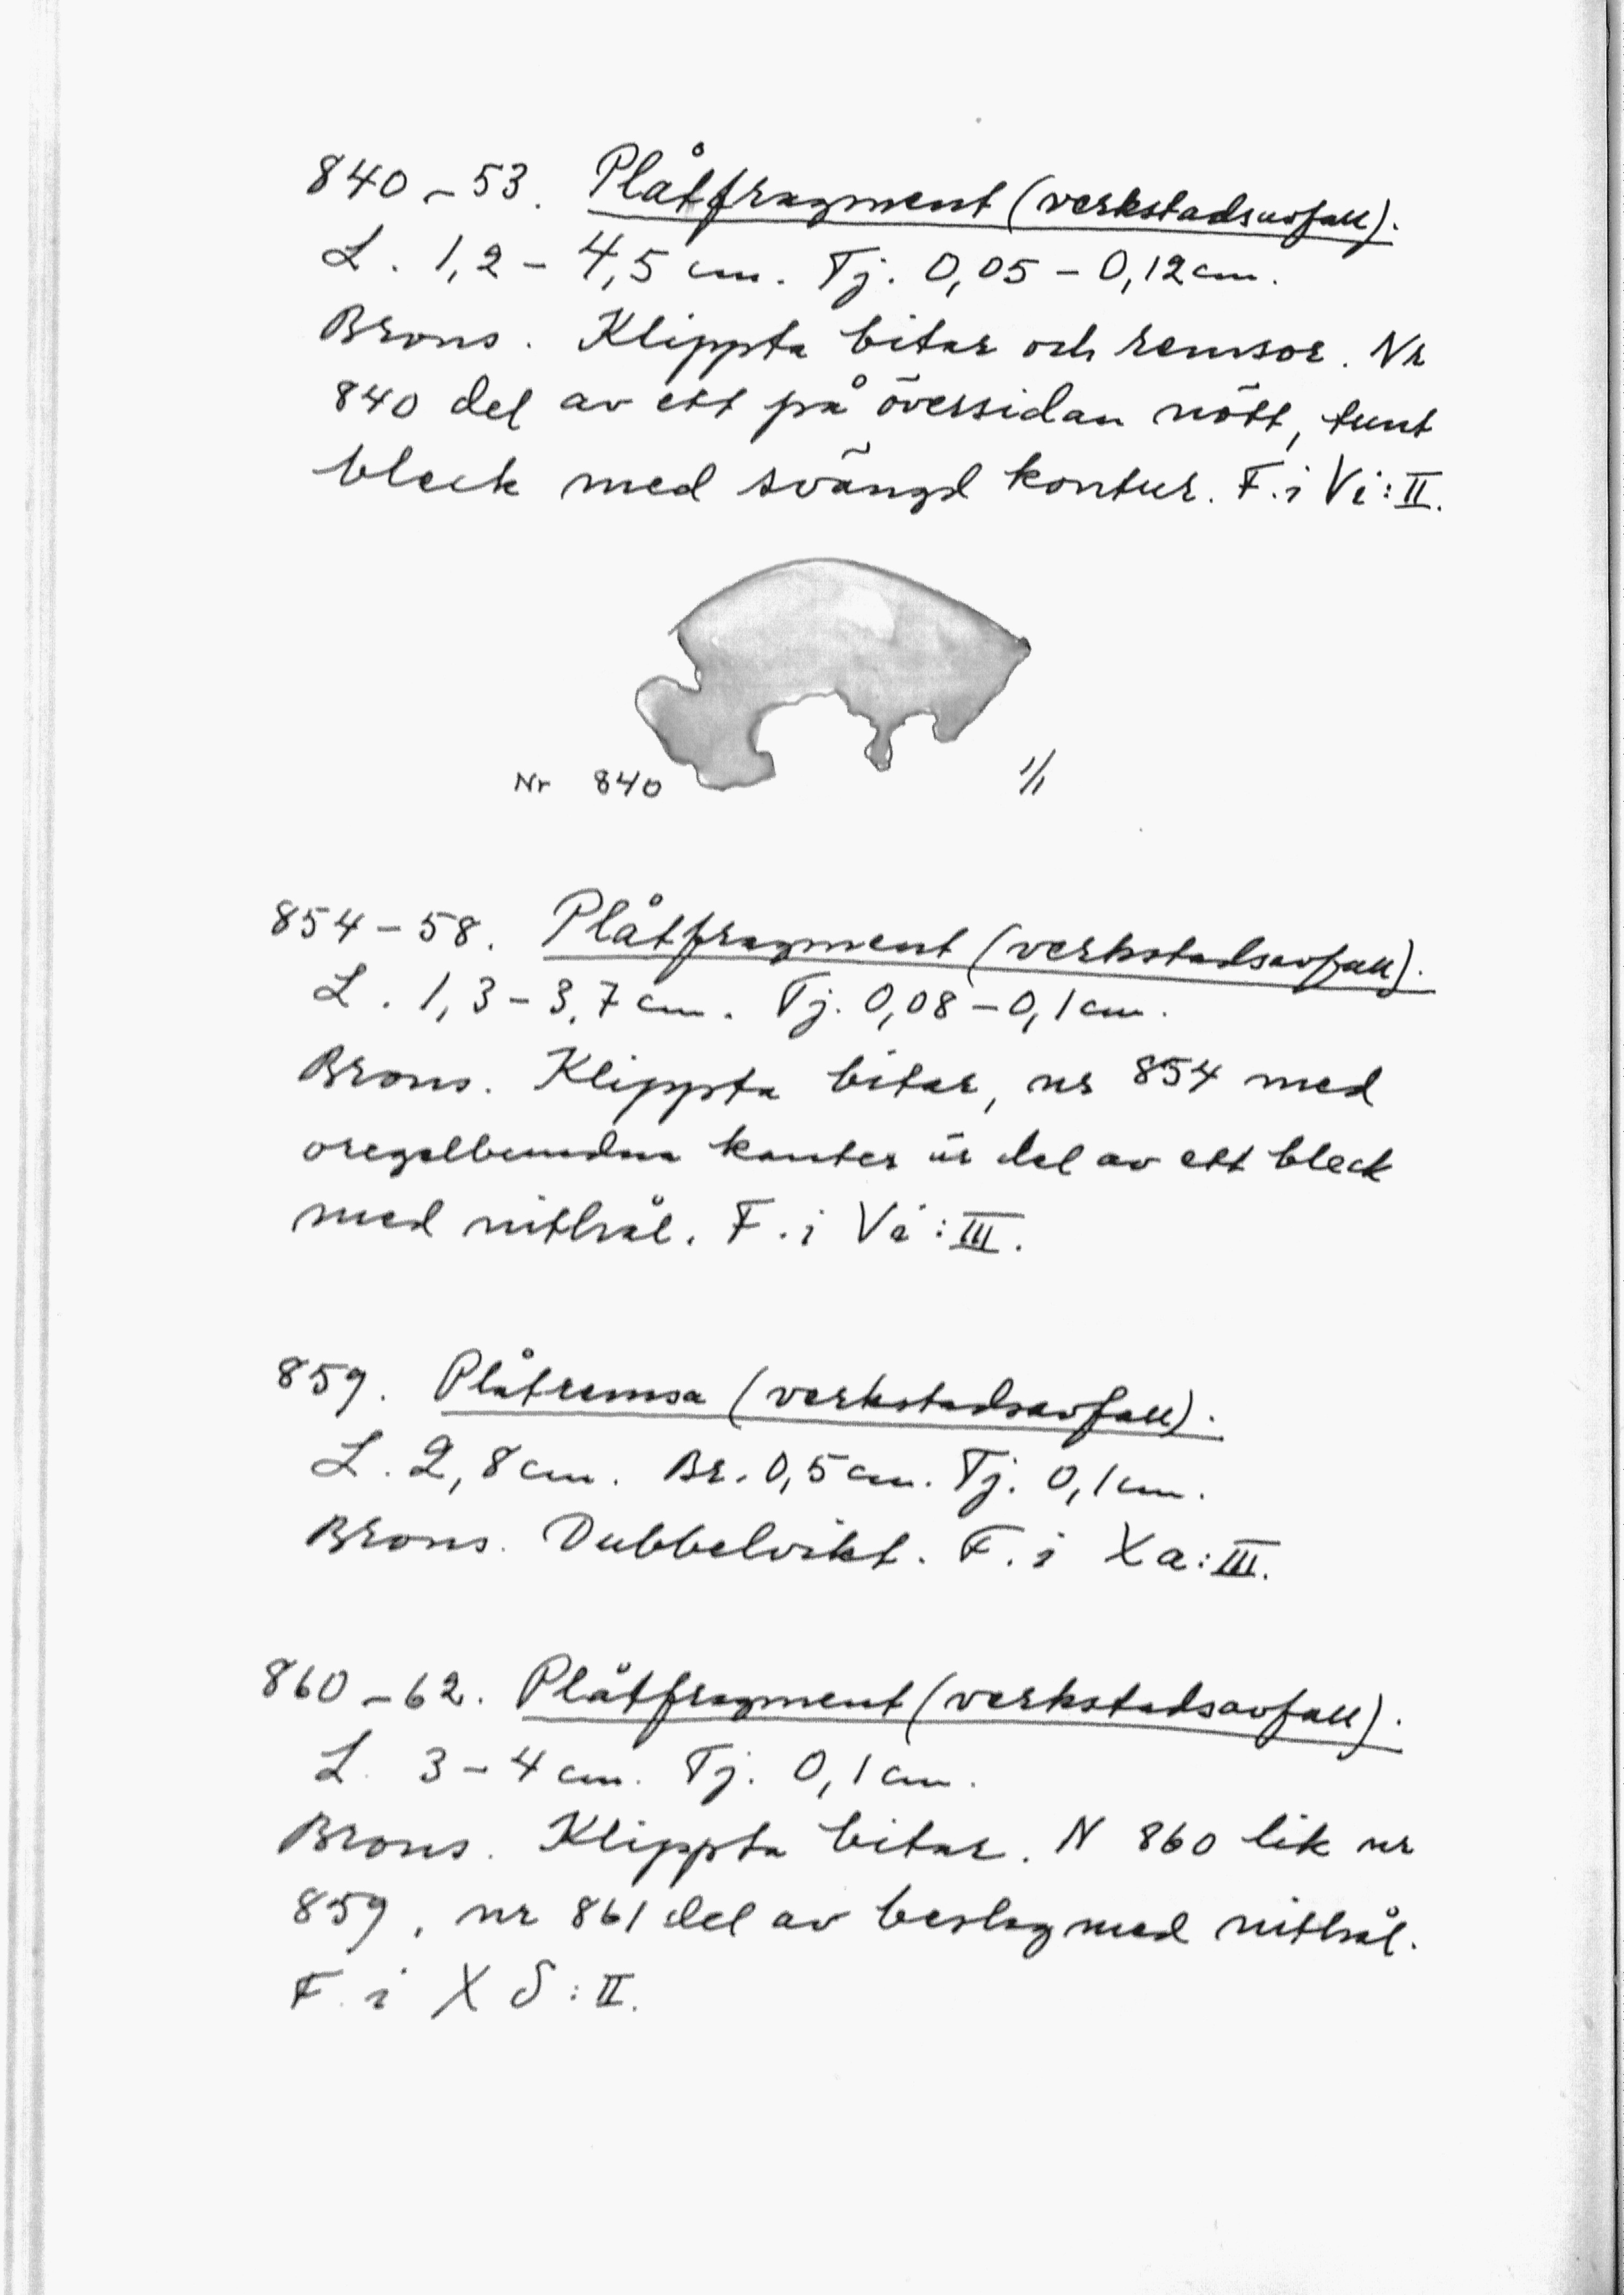 840-53. Plåtfragment (verkstadsavfall).
L. 1,2 - 4,5 cm. Tj. 0,05 - 0,12 cm.
Brons. Klippta bitar och remsor. Nr
840 del av ett på översidan nött, tunt
bleck med svängd kontur. F. i Vi:II.
Nr 840 1/1
854-58. Plåtfragment (verkstadsavfall).
L. 1,3-3,7 cm. Tj. 0,08-0,1 cm.
Brons. Klippta bitar, nr 854 med
oregelbundna kanter är del av ett bleck
med nithål. F. i :III.
859. Plåtremsa (verkstadsavfall).
L. 2,8 cm. Br. 0,5 cm. Tj. 0,1 cm.
Brons. Dubbelvikt. F. i Xa:III.
860-62. Plåtfragment (verkstadsavfall).
L. 3-4 cm. Tj. 0,1 cm.
Brons. Klippta bitar. N 860 lik nr
859, nr 861 del av beslag med nithål.
F. i X δ:II.